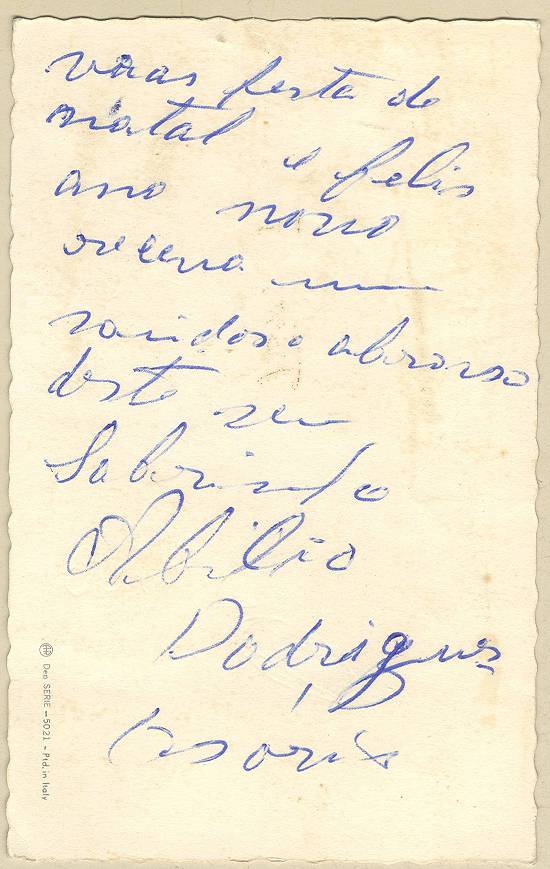 voas festa de
natal e felis
ano novo
receva um
saudoso abraso
deste seu
Sobrinho
Abilio
Rodrigues
Dep SERIE - 5021 - Ptd. in Italy